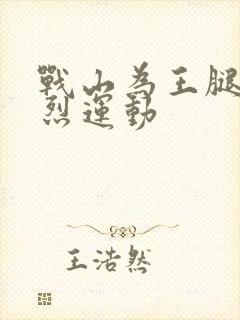 戰山為王腿
烈運動
王浩然